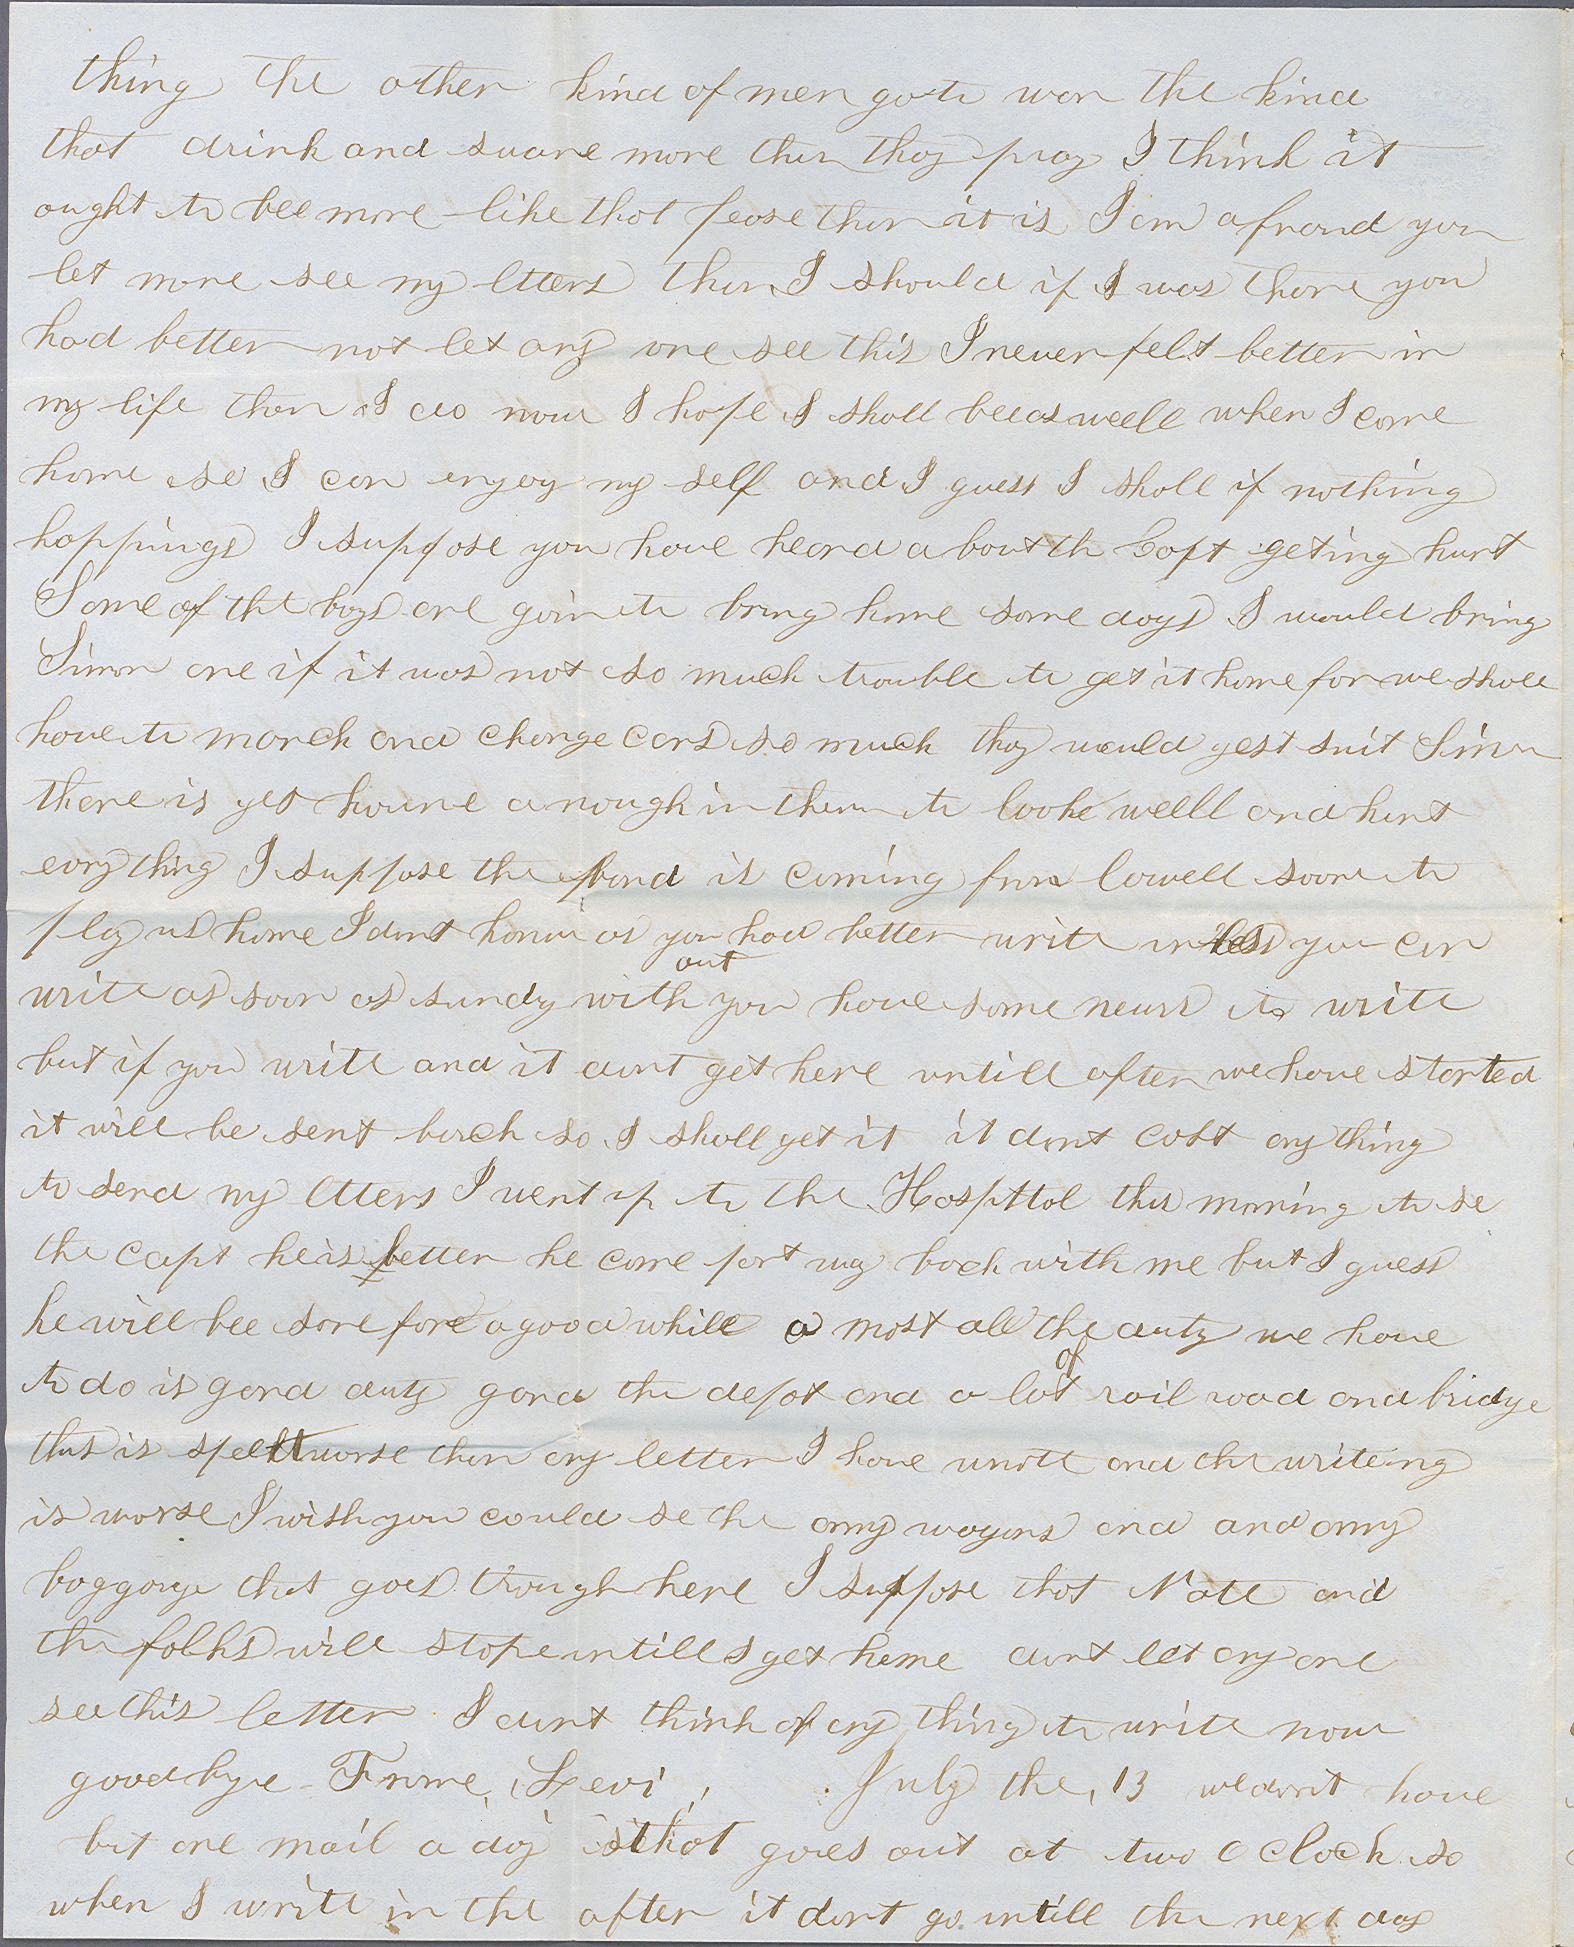 thing the other kind of men goto war the kind
that drink and sware more then thay pray I think it
ought to bee more like that pease then it is I am afraid you
let more see my ltters then I should if I was thare you
had better not let any one see this I never felt better in
my life then I do now I hope I shall bee as well when I come
home so I can enjoy my self and I guess I shall if nothing
happings I suppose you have heard a bout th Capt geting hurt
Some of the boys are goin to bring home some dogs I would bring
Simon one if it was not so much trouble to get it home for we shall
have to march and change cars so much thay would gest suit Simon
thare is gest houne a nough in them to looke welll and hunt
evry thing I suppose the band is coming from Lowell soone to
play us home I dont know as you had better write unless you can
write as soon as sundy with out you have some newss to write
but if you write and it dont get here untill after we have started
it will be sent back so I shall get it it dont cost any thing
to send my ltters I went up to the Hospttal this morning to se
the capt he is better he come part way back with me but I guess
he will bee sore fore a good while a most all the duty we have
to do is gard duty gard the depot and a lot of rail road and bridge
this is spellt worse then any letter I have writt and the writeing
is worse I wish you could se the army wagons and and army
baggage that goes through here I suppose that Nate and
th folks will stope untill I get home dont let any one
see this letter I dont think of any thing to write now
good bye Frome Levi July the 13 we dont have
but one mail a day that goes out at two O clock so
when I write in the after it dont go untill the next day